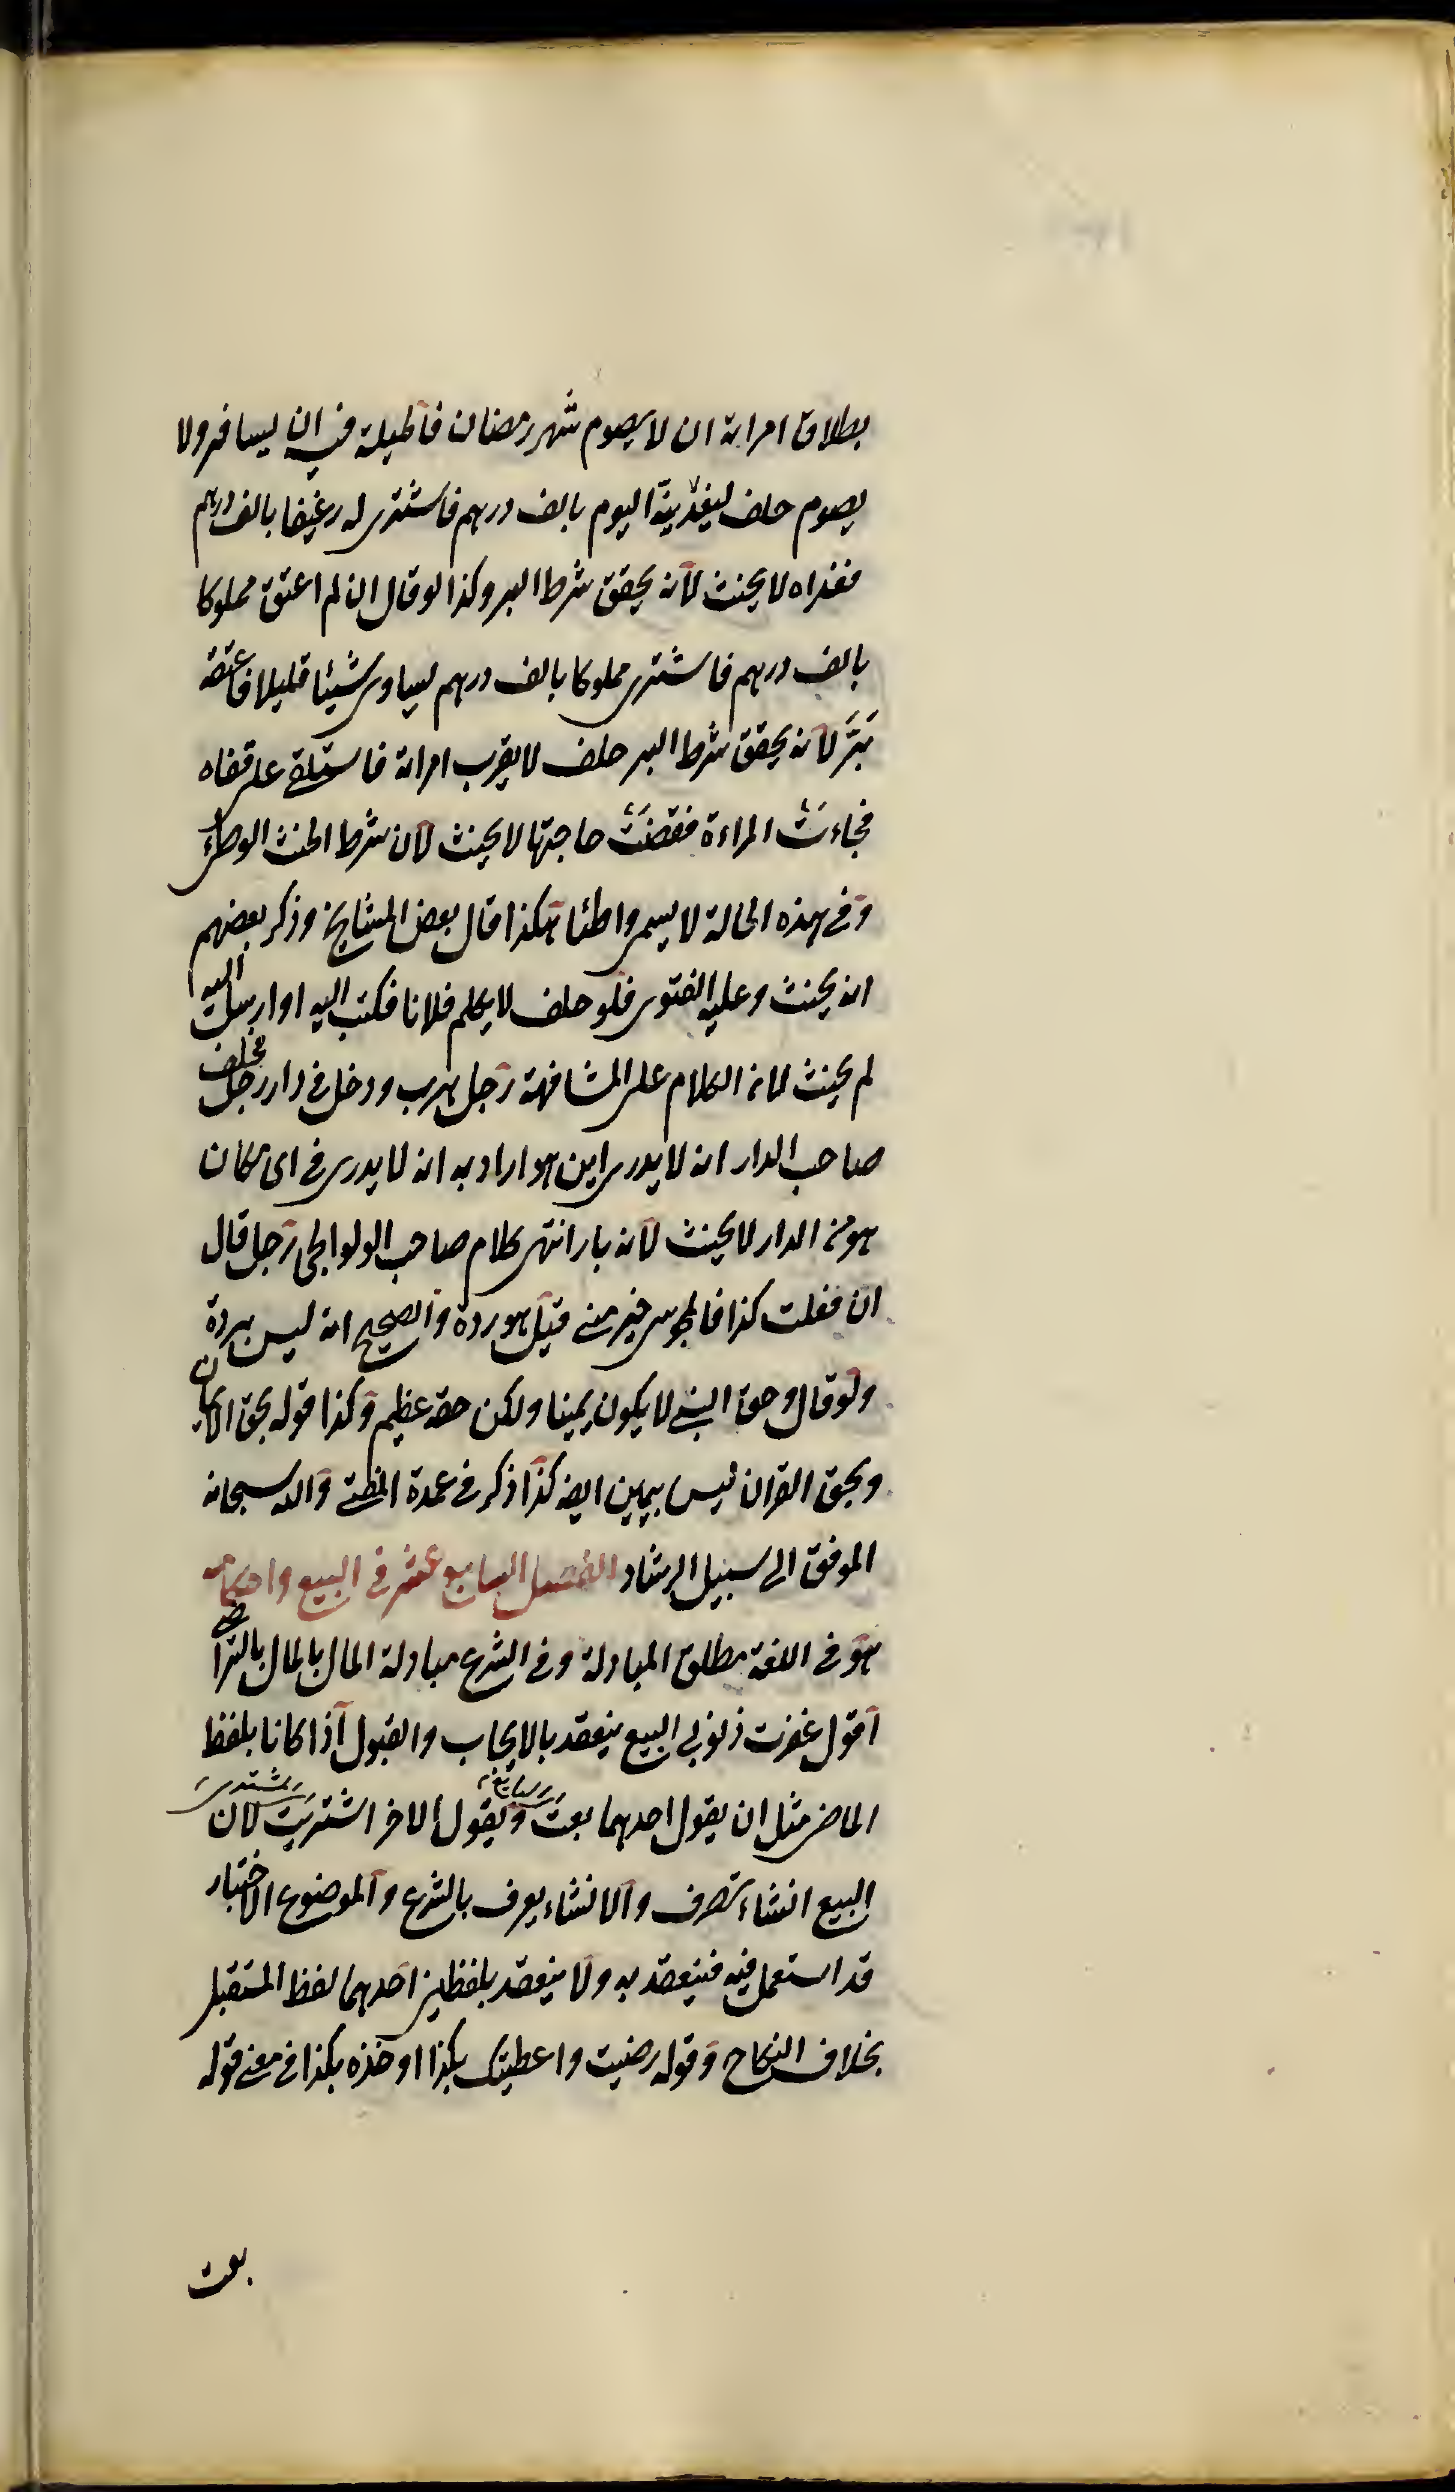 بطلاق امراته ان لا يصوم شهر رمضان فالحيلة فيه ان يسافر ولا
يصوم حلف ليغدينه اليوم بالف درهم فاشترى له رغيفا بالف درهم
فغداه لا يحنث لانه يحقق شرط البر وكذا لو قال ان لم اعتق مملوكا
بالف درهم فاشترى مملوكا بالف درهم يساوى شيئا قليلا فاعتقه
يبر لانه يحقق شرط البر حلف لا يقرب امراته فاستلقى على قفاه
فجاءت المراءة فقضت حاجتها لا يحنث لان شرط الحنث الوطئ
وفى هذه الحالة لا يسمى واطئا هكذا قال بعض المشايخ وذكر بعضهم
انه يحنث وعليه الفتوى فلو حلف لا يكلم فلانا فكتب اليه او ارسلت اليه
لم يحنث لانه الكلام على المشافهة رجل هرب ودخل فى دار رجل فحلف
صاحب الدار انه لا يدرى اين هو اراد به انه لا يدرى فى اى مكان
هو من الدار لا يحنث لانه بار انتهى كلام صاحب الولوالجى رجل قال
ان فعلت كذا فالمجوسى خير منى قيل هو ردة والصحيح انه ليس بردة
ولو قال وحق النبى لا يكون يمينا ولكن حقه عظيم وكذا قوله بحق الايمان
وبحق القران ليس بيمين ايضا كذا ذكر فى عمدة المفتى والله سبحانه
الموفق الى سبيل الرشاد الفصل السابع عشر فى البيع واحكامه
هو فى اللغة مطلق المبادلة وفى الشرع مبادلة المال بالمال بالتراضى
اقول غفرت ذنوبى البيع ينعقد بالايجاب والقبول اذا كانا بلفظ
الماضى مثل ان يقول احدهما بعت ويقول الاخر اشتريت لان
البيع انشاء تصرف والانشاء يعرف بالشرع والموضوع الاختبار
قد استعمل فيه فينعقد به ولا ينعقد بلفظين احدهما لفظ المستقبل
بخلاف النكاح وقوله رضيت واعطيتك بكذا او خذه بكذا فى معنى قوله
بعت